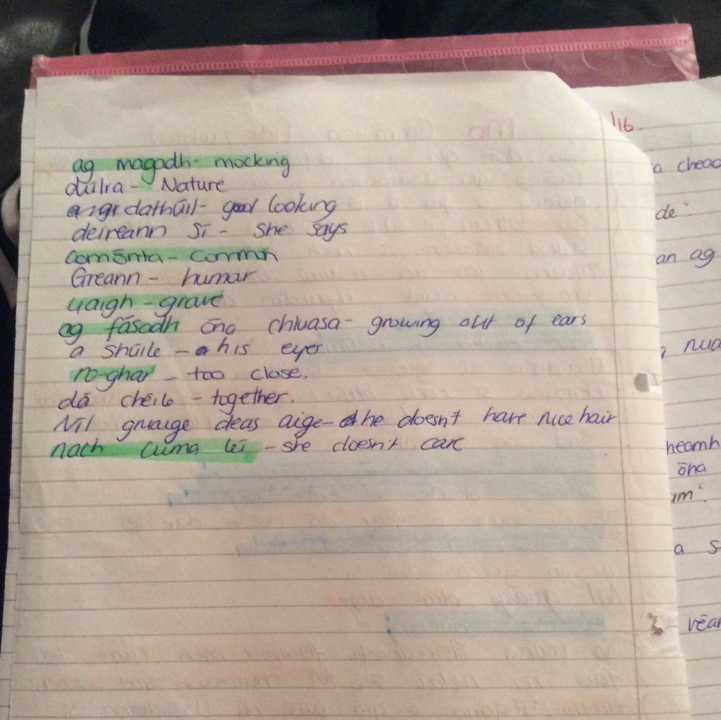 ag magadh- mocking
dúlra - Nature
dathúil- good looking
deireann sí - she says
comónta - common
Greann - humar
uaigh - grave
ag fásadh óna chluasa- growing out of ears
a shúile - his eyes
ró-ghar - too close.
dá chéile - together.
Níl gruaige deas aige- he doesn't have nice hair
nach cuma léi - she doesn't care
/16.
a cheac
de:
an ag
nua
heamh
óna
a s
- véar